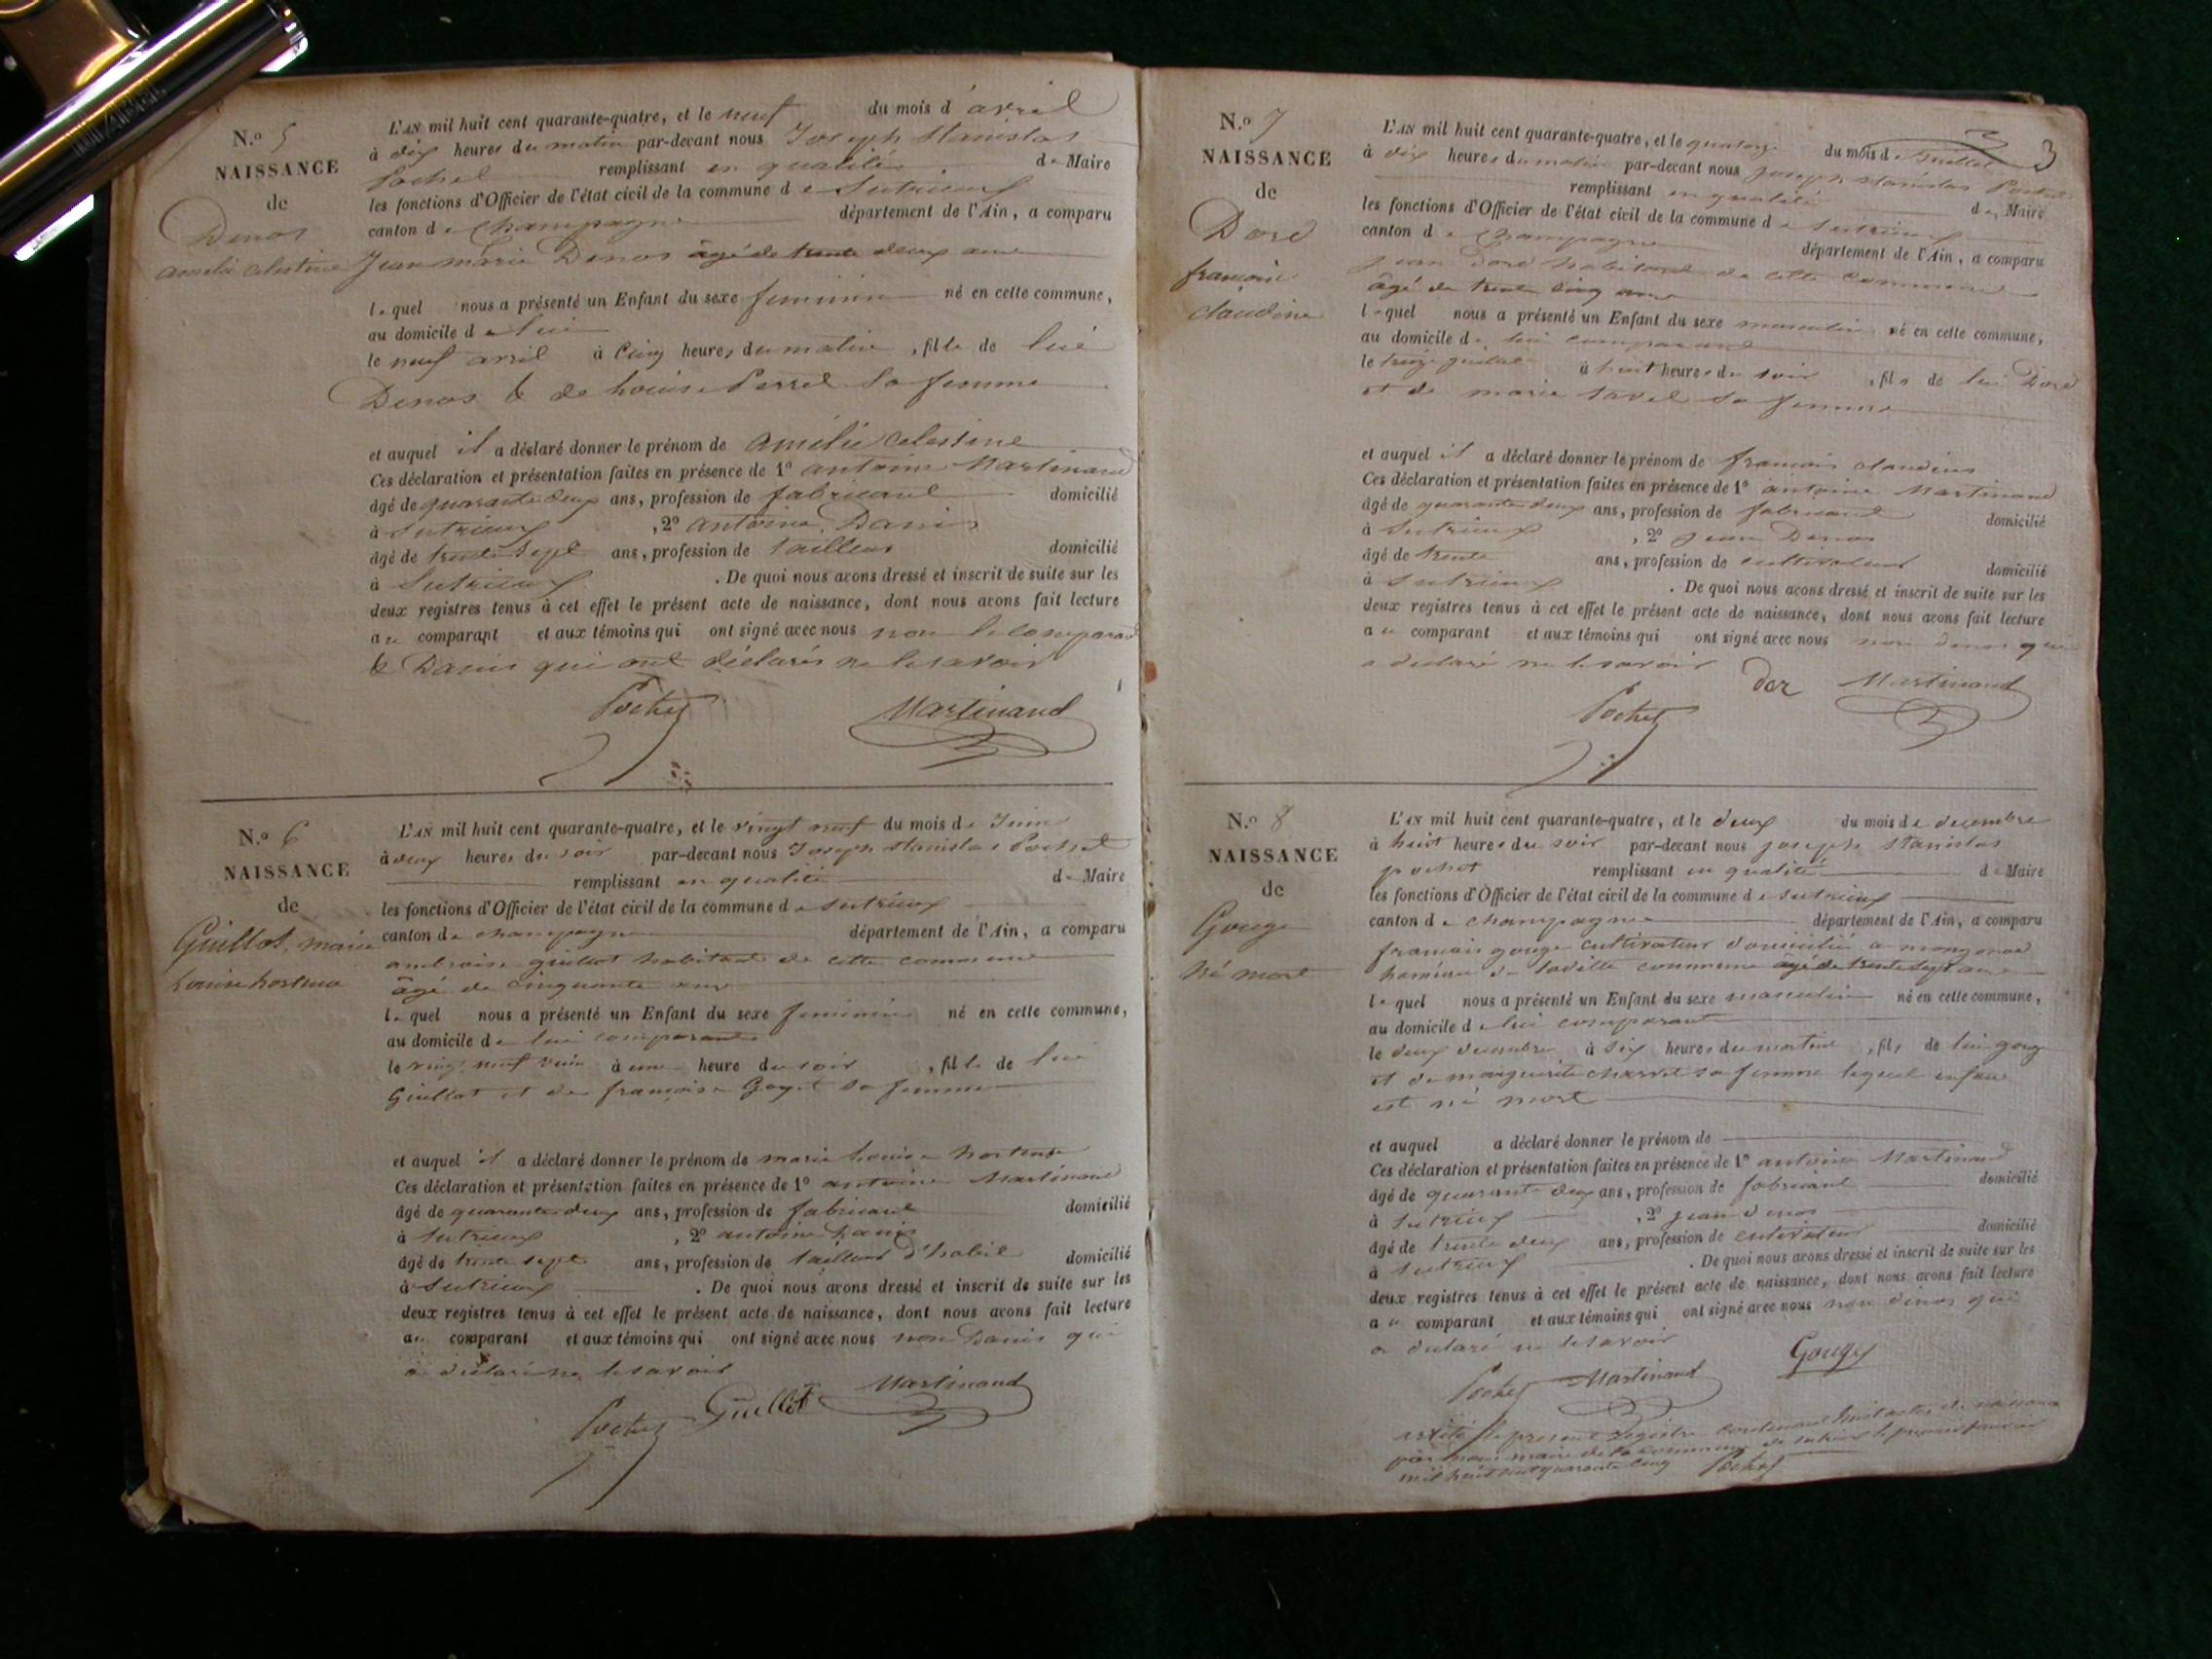 N.o 5
NAISSANCE
de
Denos
amelie celestine
L'AN mil huit cent quarante-quatre, et le neuf du mois d'avril
à dix heures du matin par-devant nous Joseph Stanislas
Pochet remplissant en qualité de Maire
les fonctions d'Officier de l'état civil de la commune de Sutrieux
canton de Champagne département de l'Ain, a comparu
Jean marie Denos âgé de trente deux ans
lequel nous a présenté un Enfant du sexe feminin né en cette commune,
au domicile de lui
le neuf avril à Cinq heures du matin, fille de lui
Denos & de Louise Perret Sa femme
et auquel il a déclaré donner le prénom de amélie Celestine
Ces déclaration et présentation faites en présence de 1o antoine Martinand
âgé de quarante deux ans, profession de fabricant domicilié
à Sutrieux, 2o antoine Danis
âgé de trente sept ans, profession de tailleur domicilié
à Sutrieux. De quoi nous avons dressé et inscrit de suite sur les
deux registres tenus à cet effet le présent acte de naissance, dont nous avons fait lecture
au comparant et aux témoins qui ont signé avec nous non le comparant
& Danis qui ont déclarés ne le savoir
Pochet Martinand
N.o 6
NAISSANCE
de
Guillot, marie
Louise hortense
L'AN mil huit cent quarante-quatre, et le vingt neuf du mois de Juin
à deux heures du soir par-devant nous Joseph Stanislas Pochet
remplissant en qualité de Maire
les fonctions d'Officier de l'état civil de la commune de Sutrieux
canton de champagne département de l'Ain, a comparu
ambroise guillot habitant de cette commune
âgé de cinquante ans
lequel nous a présenté un Enfant du sexe feminin né en cette commune,
au domicile de lui comparant
le vingt neuf Juin à une heure du soir, fille de lui
Guillot et de françoise Goyet sa femme
et auquel il a déclaré donner le prénom de marie Louise hortense
Ces déclaration et présentation faites en présence de 1o antoine Martinand
âgé de quarante deux ans, profession de fabricant domicilié
à Sutrieux, 2o antoine Danis
âgé de trente sept ans, profession de tailleur d'habit domicilié
à Sutrieux. De quoi nous avons dressé et inscrit de suite sur les
deux registres tenus à cet effet le présent acte de naissance, dont nous avons fait lecture
au comparant et aux témoins qui ont signé avec nous non Danis qui
a déclaré ne le savoir
Pochet Guillot Martinand
3
N.o 7
NAISSANCE
de
Doré
françois
claudine
L'AN mil huit cent quarante-quatre, et le quatorze du mois de Juillet
à dix heures du matin par-devant nous Joseph Stanislas Pochet
remplissant en qualité de Maire
les fonctions d'Officier de l'état civil de la commune de Sutrieux
canton de Champagne département de l'Ain, a comparu
jean Doré habitant de cette commune
âgé de trente cinq ans
lequel nous a présenté un Enfant du sexe masculin né en cette commune,
au domicile de lui comparant
le treize juillet à huit heures du soir, fils de lui Doré
et de marie savel sa femme
et auquel il a déclaré donner le prénom de francois claudius
Ces déclaration et présentation faites en présence de 1o antoine Martinand
âgé de quarante deux ans, profession de fabricant domicilié
à Sutrieux, 2o jean Denos
âgé de trente ans, profession de cultivateur domicilié
à Sutrieux. De quoi nous avons dressé et inscrit de suite sur les
deux registres tenus à cet effet le présent acte de naissance, dont nous avons fait lecture
au comparant et aux témoins qui ont signé avec nous non denos qui
a declaré ne le savoir
Pochet Martinand
N.o 8
NAISSANCE
de
Gouge
né mort
L'AN mil huit cent quarante-quatre, et le deux du mois de decembre
à huit heures du soir par-devant nous joseph stanislas
pochet remplissant en qualité de Maire
les fonctions d'Officier de l'état civil de la commune de Sutrieux
canton de champagne département de l'Ain, a comparu
francois gouge cultivateur domicilié a mongonod
hameau de ladite commune âgé de trente sept ans
lequel nous a présenté un Enfant du sexe masculin né en cette commune,
au domicile de lui comparant
le deux decembre à six heures du matin, fils de lui gouge
et de marguerite charvet sa femme lequel enfant
est né mort
et auquel a déclaré donner le prénom de
Ces déclaration et présentation faites en présence de 1o antoine Martinand
âgé de quarante deux ans, profession de fabricant domicilié
à Sutrieux, 2o jean denos
âgé de trente deux ans, profession de cultivateur domicilié
à Sutrieux. De quoi nous avons dressé et inscrit de suite sur les
deux registres tenus à cet effet le présent acte de naissance, dont nous avons fait lecture
au comparant et aux témoins qui ont signé avec nous non denos qui
a declaré ne le savoir
Pochet Martinand Gouge
arrêté le present registre contenant huit actes de naissance
par nous maire de la commune de sutrieux le premier janvier
mil huit cent quarante cinq Pochet